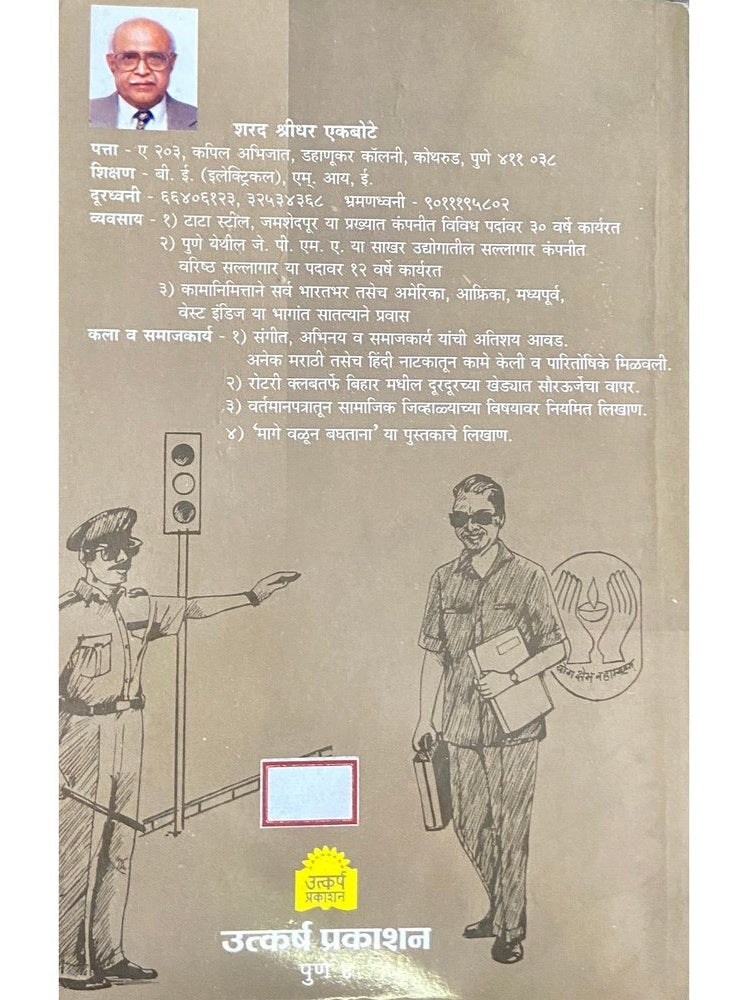 शरद श्रीधर एकबोटे
पत्ता - ए २०३, कपिल अभिजात, डहाणूकर कॉलनी, कोथरुड, पुणे ४११ ०३८
शिक्षण - बी. ई. (इलेक्ट्रिकल), एम्. आय, ई.
दूरध्वनी - ६६४०६१२३, ३२५३४३६८ भ्रमणध्वनी - ९०१११९५८०२
व्यवसाय - १) टाटा स्टील, जमशेदपूर या प्रख्यात कंपनीत विविध पदांवर ३० वर्षे कार्यरत
२) पुणे येथील जे. पी. एम. ए. या साखर उद्योगातील सल्लागार कंपनीत
वरिष्ठ सल्लागार या पदावर १२ वर्षे कार्यरत
३) कामानिमित्ताने सर्व भारतभर तसेच अमेरिका, आफ्रिका, मध्यपूर्व,
वेस्ट इंडिज या भागांत सातत्याने प्रवास
कला व समाजकार्य - १) संगीत, अभिनय व समाजकार्य यांची अतिशय आवड.
अनेक मराठी तसेच हिंदी नाटकातून कामे केली व पारितोषिके मिळवली.
२) रोटरी क्लबतर्फे बिहार मधील दूरदूरच्या खेड्यात सौरऊर्जेचा वापर.
३) वर्तमानपत्रातून सामाजिक जिव्हाळ्याच्या विषयावर नियमित लिखाण.
४) 'मागे वळून बघताना' या पुस्तकाचे लिखाण.
उत्कर्ष
प्रकाशन
उत्कर्ष प्रकाशन
पुणे